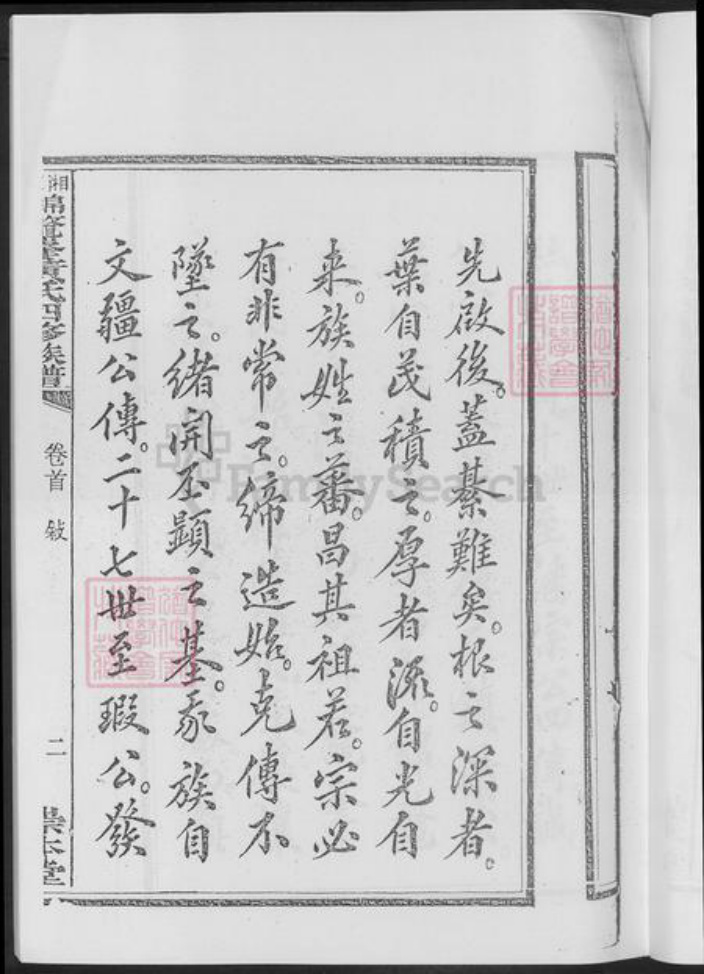 先啟後。蓋綦難矣。根之深者。
葉自茂積之。厚者流。自光自
来。族姓之蕃。昌其祖若。宗必
有非常之。締造始。克傳不
墜之。緒開丕顯之基。我族自
文疆公傳。二十七世至瑕公。發
湘
黃氏四修族譜
卷首 敍
二
崇本堂
FamilySearch